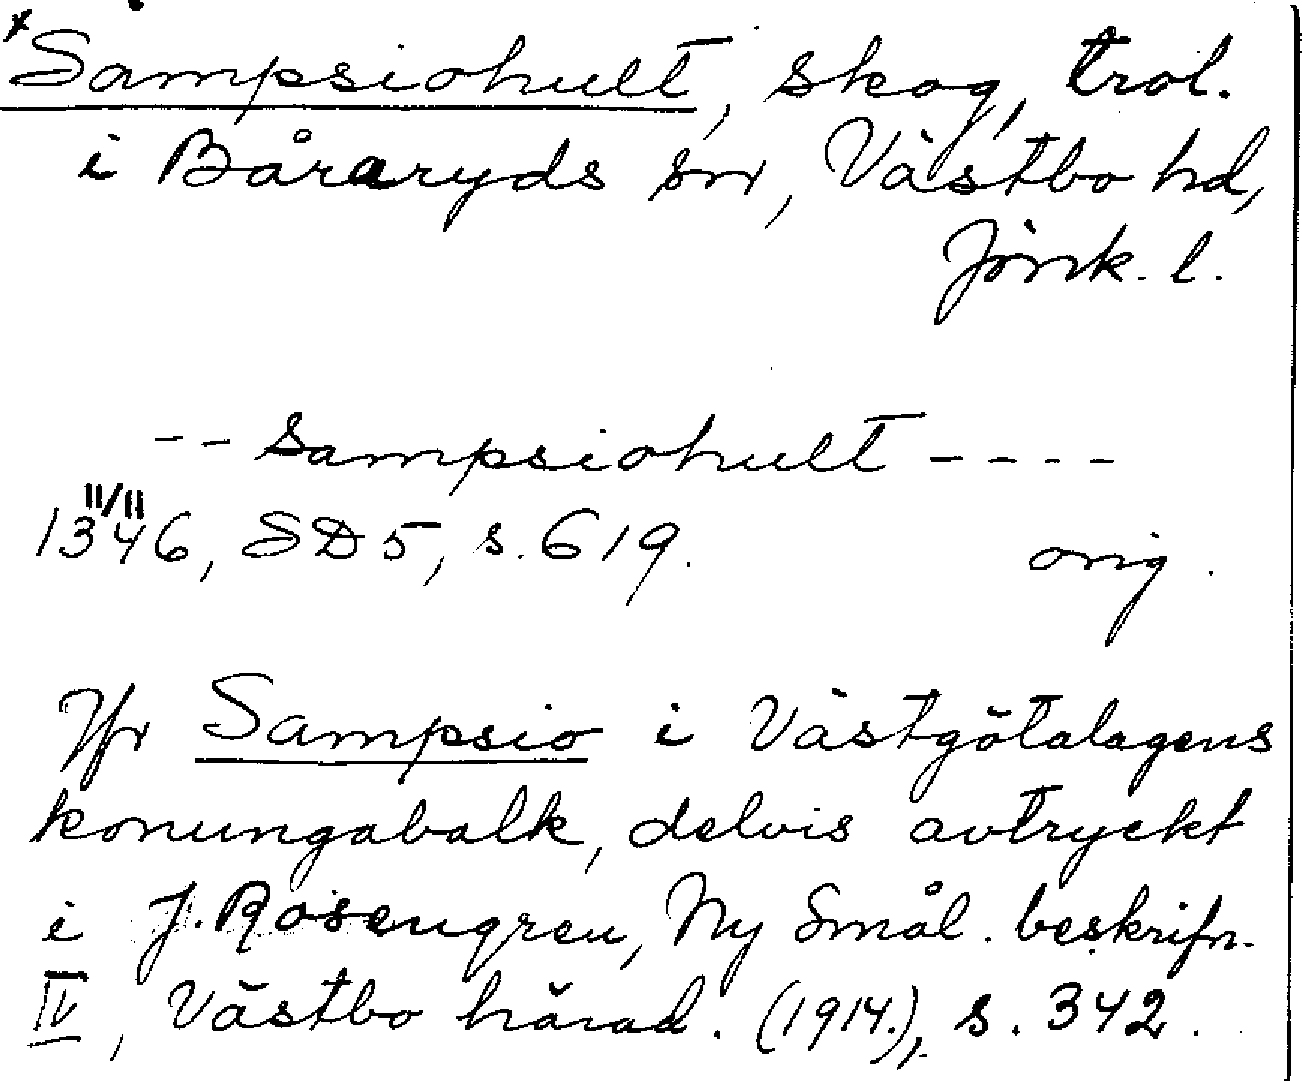 *Sampsiohult, skog, trol.
i Båraryds sn, Västbo hd,
Jönk. l.
-- Sampsiohult ----
1346 11/11, SD 5, s. 619. orig.
Jfr Sampsio i Västgötalagens
konungabalk, delvis avtryckt
i J. Rosengren, Ny Smål. beskrifn.
IV, Västbo härad. (1914.), s. 342.